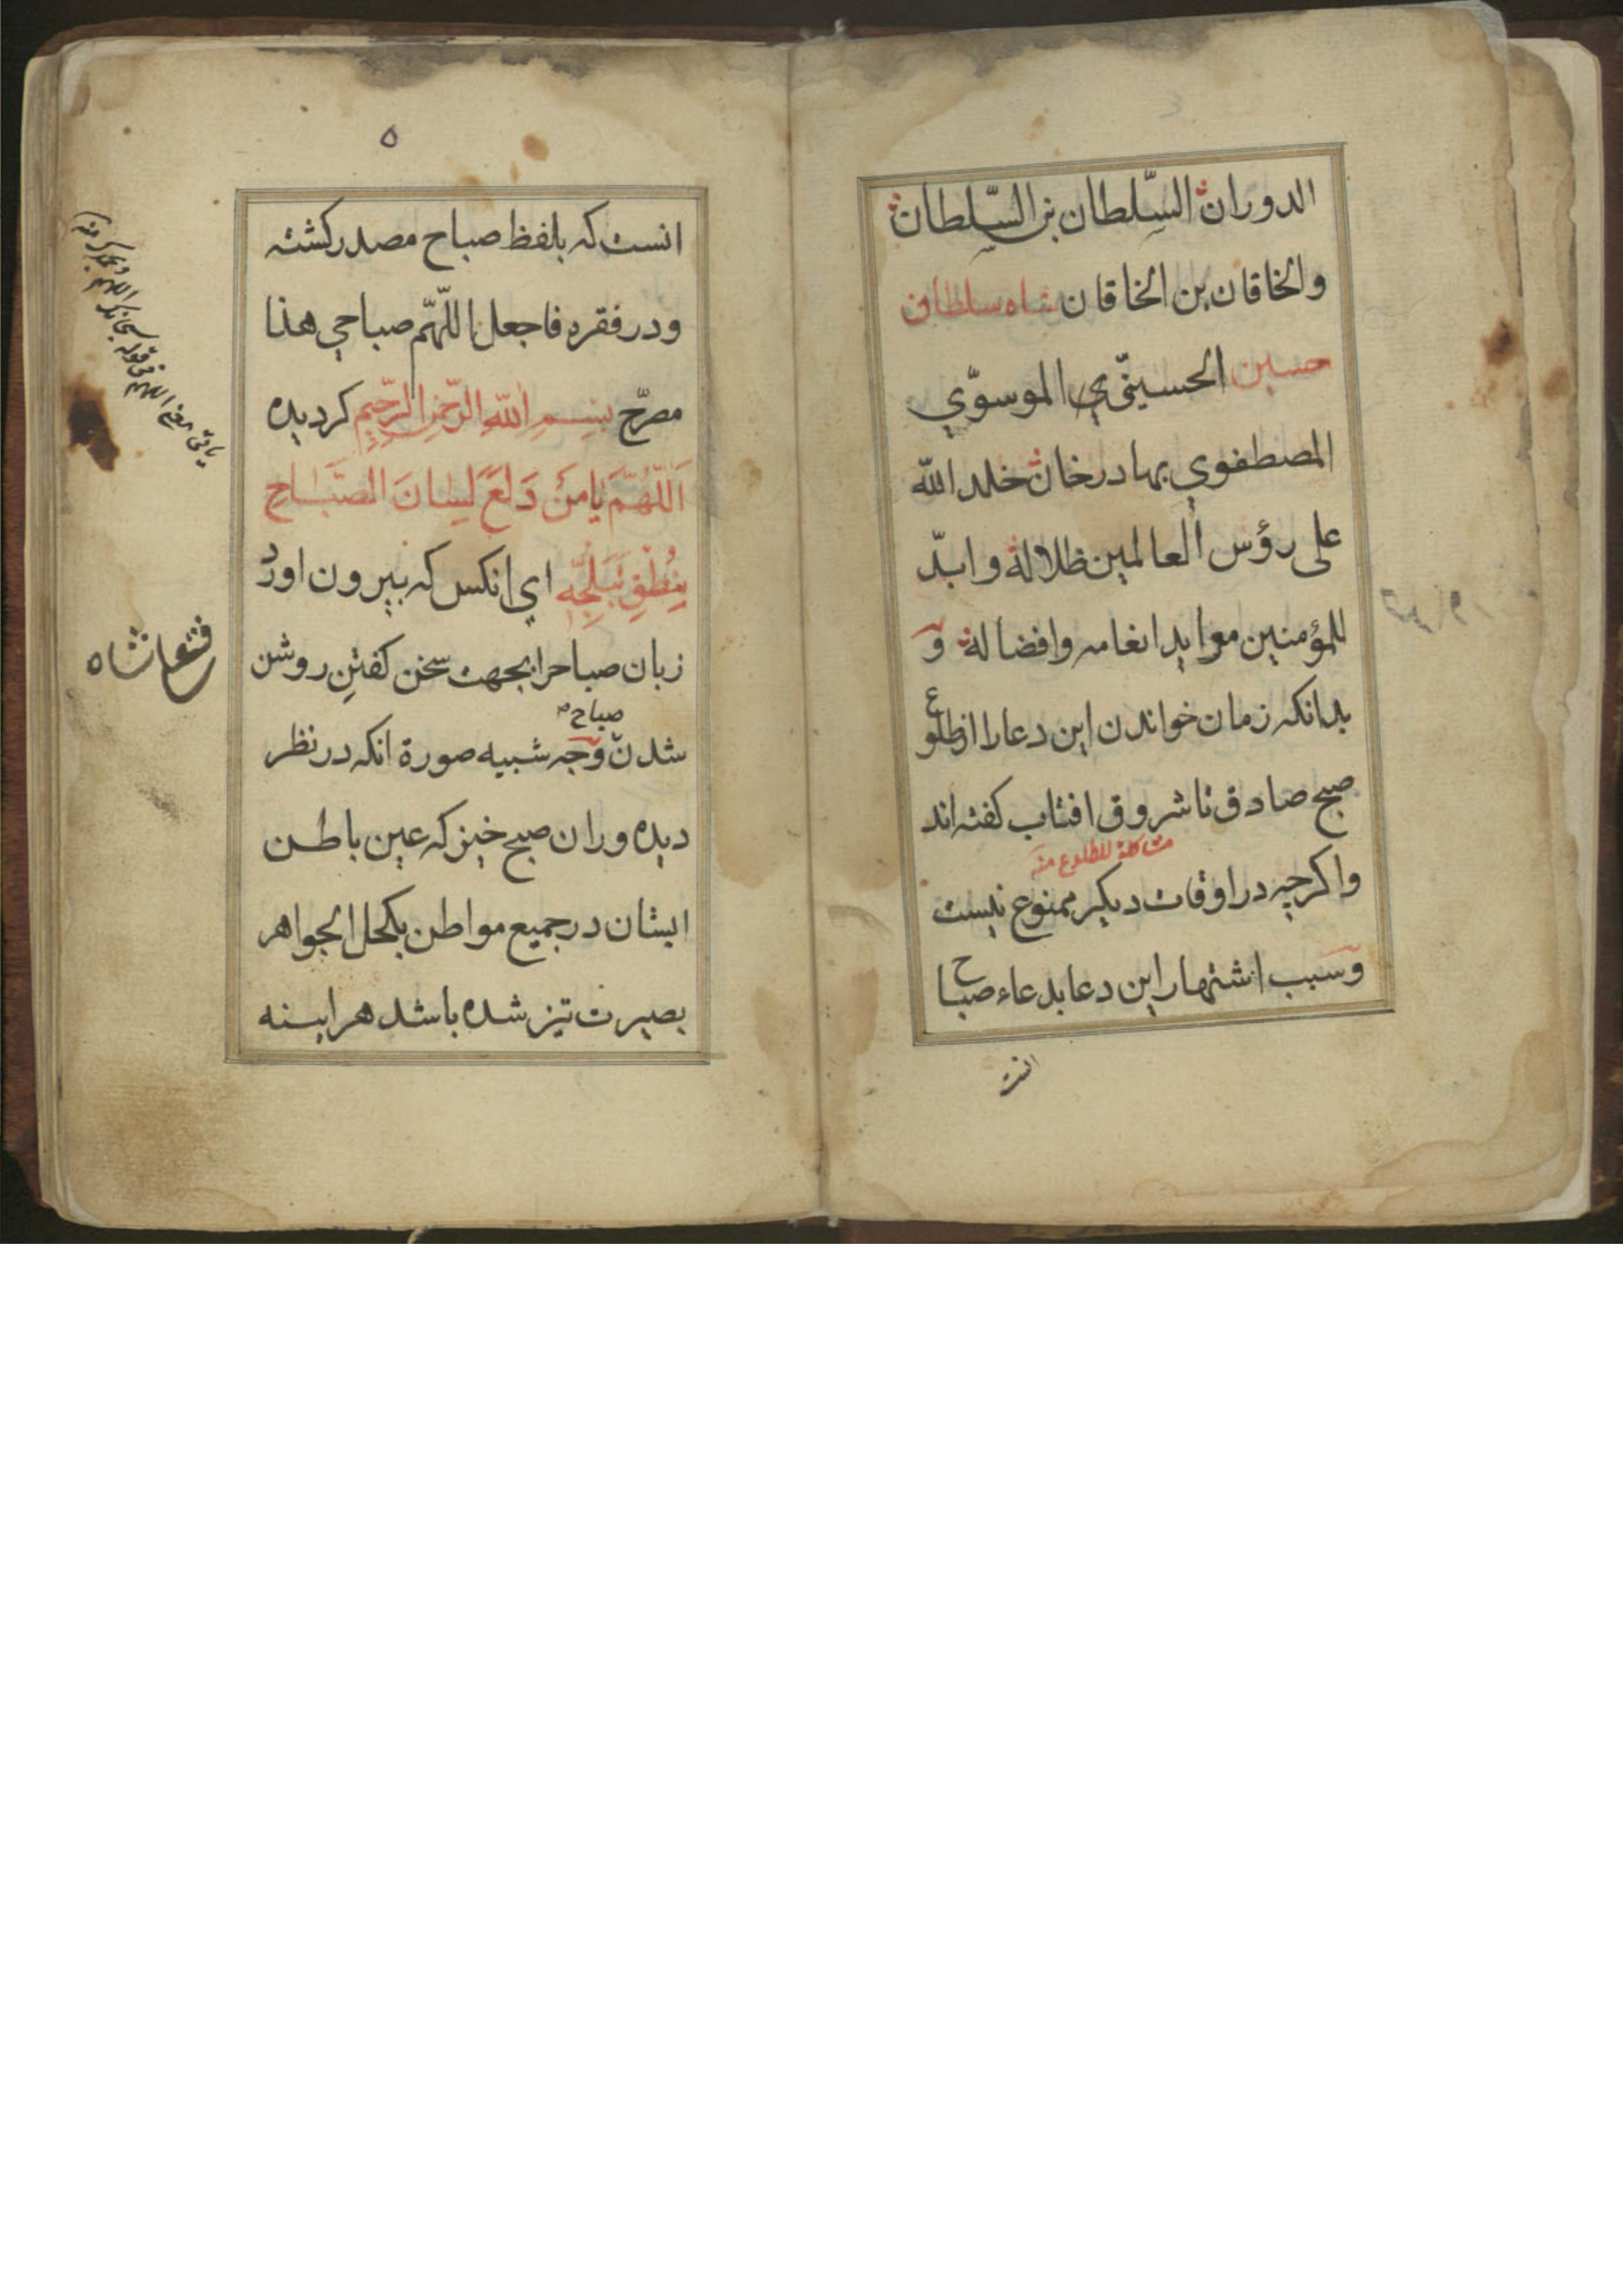 الدوران السّلطان بن السّلطان
والخاقان بن الخاقان شاه سلطان
حسين الحسينيّ الموسوّي
المصطفوي بهادرخان خلد اللّه
على رؤس العالمين ظلاله وابدّ
للمؤمنين موايد انعامه وافضاله و
بدانكه زمان خواندن اين دعارا ازطلوع
صبح صادق تا شروق افتاب كفته اند
مشاكلة للطلوع منه
واكرچه در اوقات ديكر ممنوع نيست
وسبب اشتهار اين دعا بدعاء صباح
انست
۵
انست كه بلفظ صباح مصدر كشته
ودر فقره فاجعل اللّهمّ صباحي هذا
مصرّح بِسْمِ اللّهِ الرّحمنِ الرّحيمِ كرديده
اَللّهُمَّ يا مَنْ دَلَعَ لِسانَ الصَّباحِ
بِنُطْقِ تَبَلُّجِه اي انكس كه بيرون اورد
زبان صباحرا بجهت سخن كفتن روشن
صباح
شدن وجه شبيه صورة انكه در نظر
ديده وران صبح خيز كه عين باطن
ايشان در جميع مواطن بكحل الجواهر
بصيرت تيز شده باشد هراينه